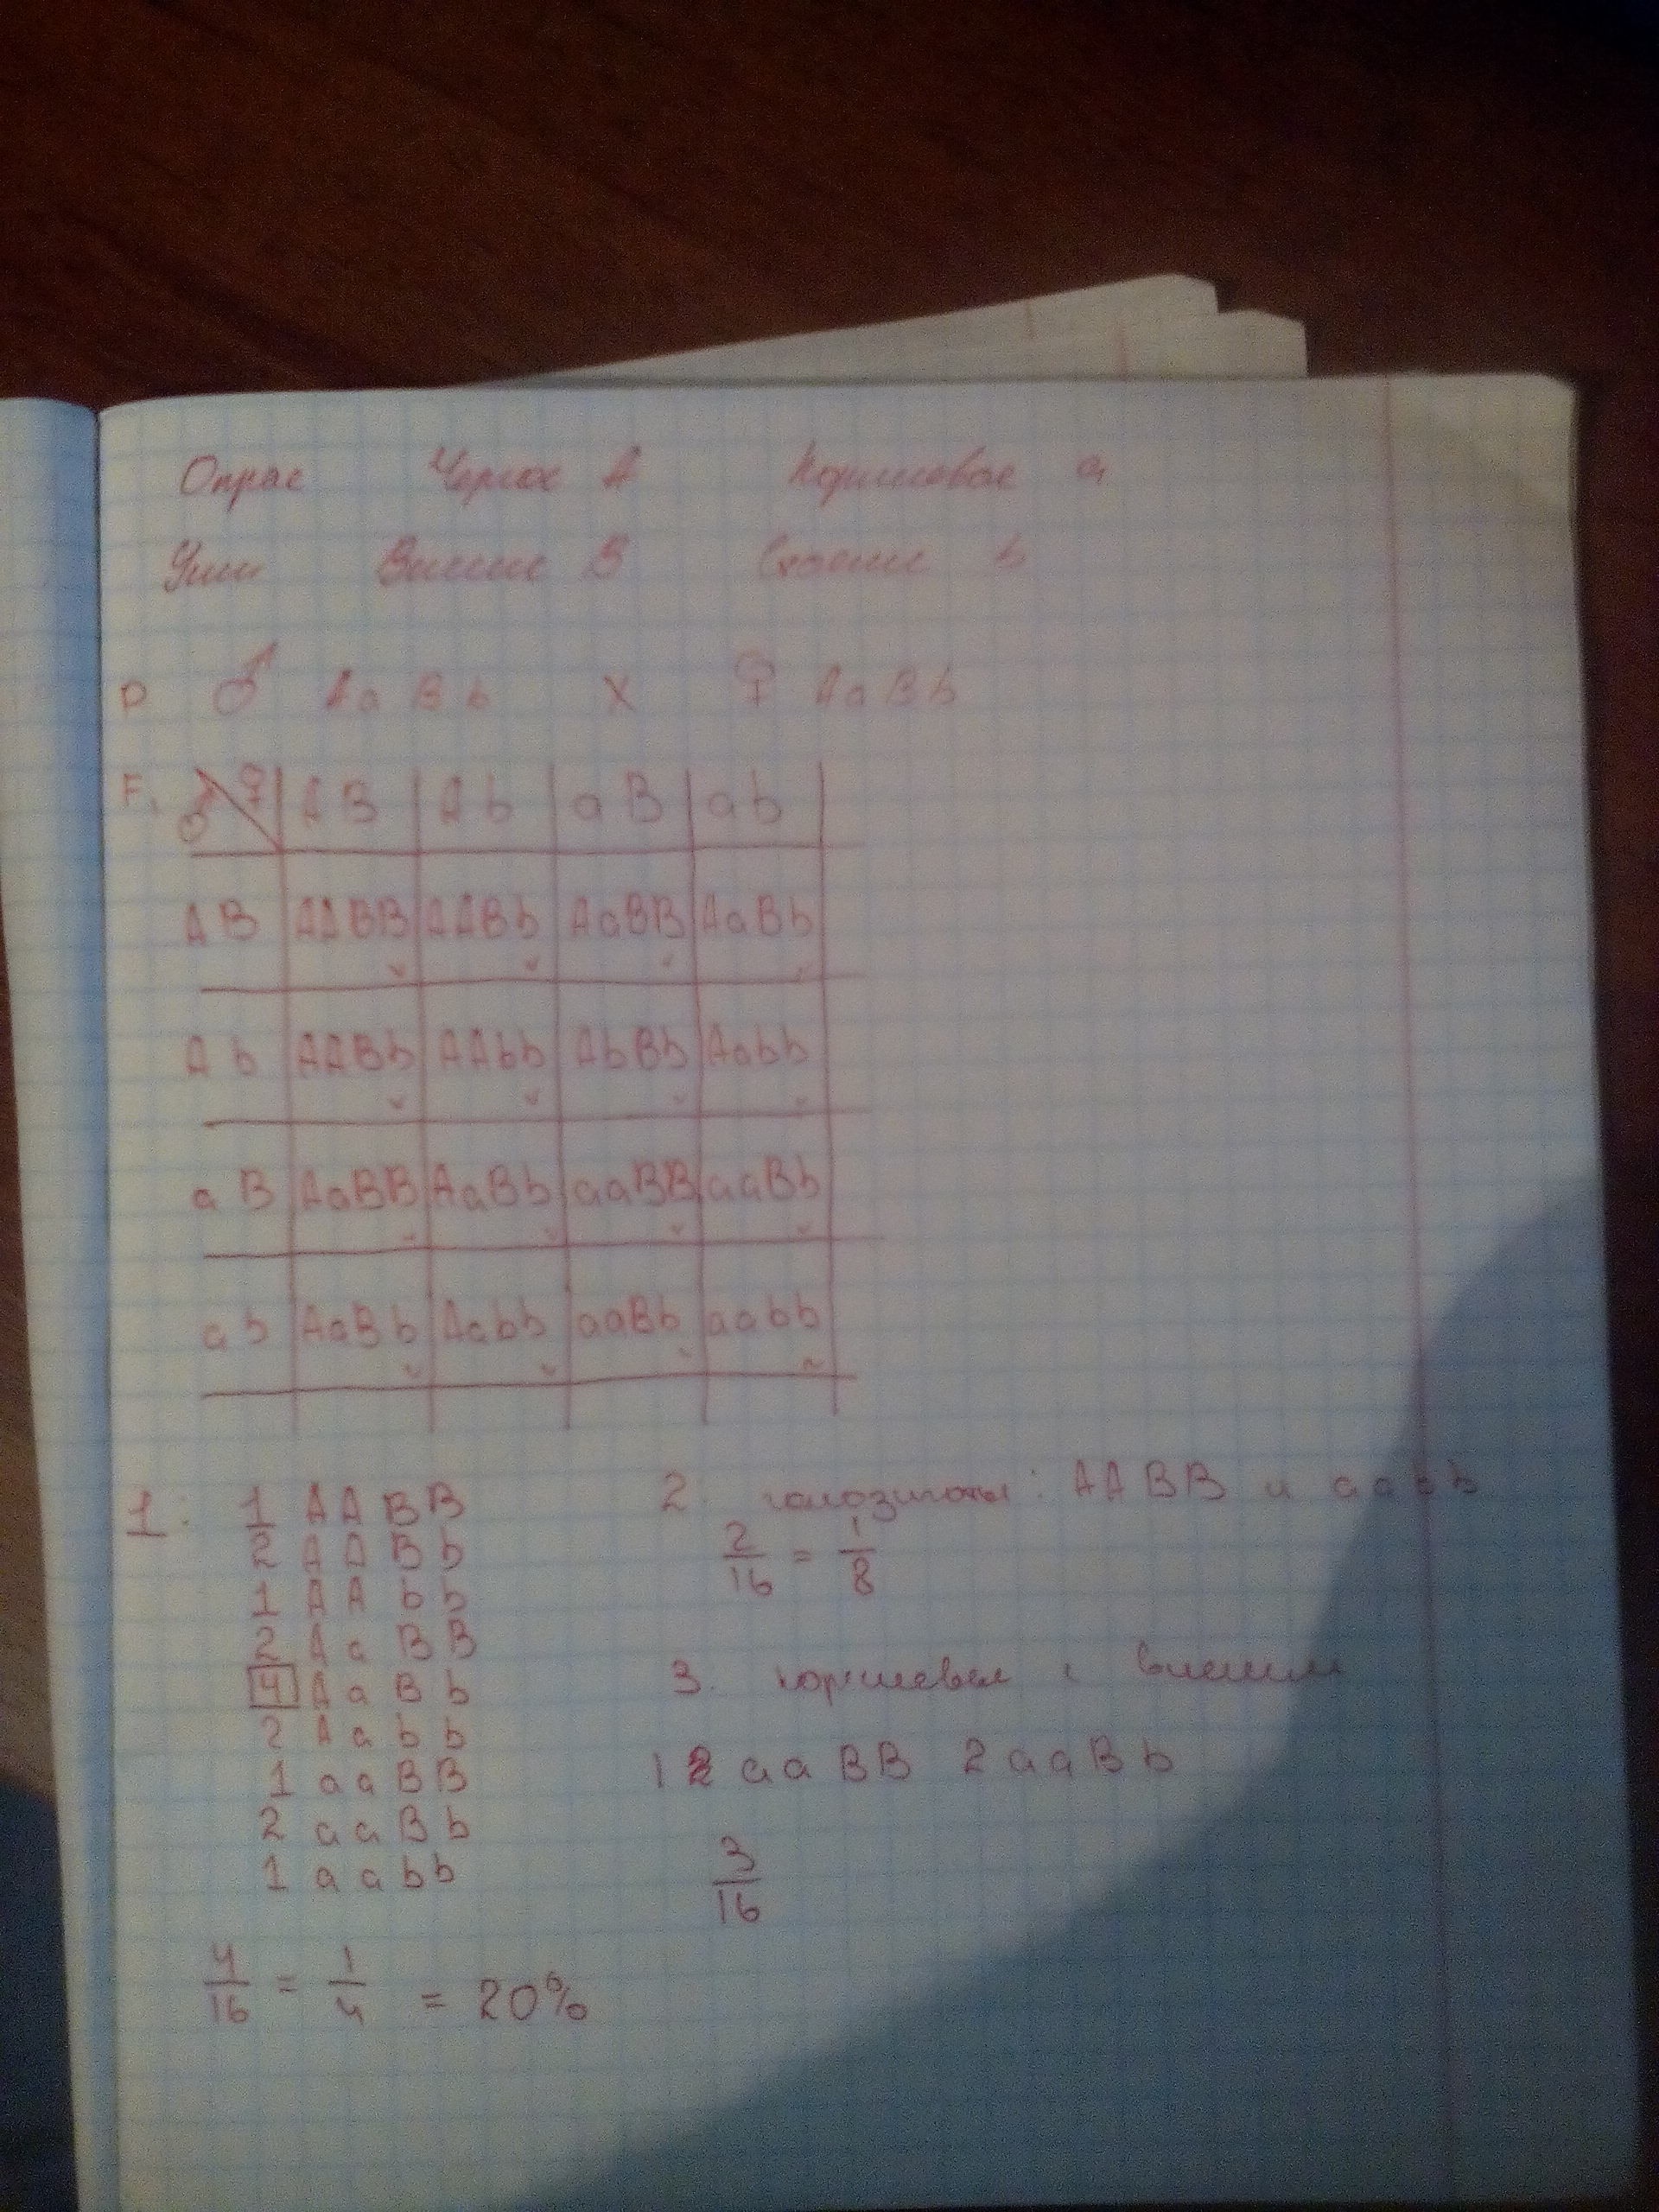 Окрас Черная A Коричневая a
Уши Висячие B Стоячие b
P ♂ AaBb X ♀ AaBb
F₁ ♂ ♀ AB Ab aB ab
AB AABB AABb AaBB AaBb
Ab AABb AAbb AbBb Aabb
aB AaBB AaBb aaBB aaBb
ab AaBb Aabb aaBb aabb
1: 1 AABB
2 AABb
1 AAbb
2 AaBB
4 AaBb
2 Aabb
1 aaBB
2 aaBb
1 aabb
4/16 = 1/4 = 20%
2. гомозиготы: AABB и aabb
2/16 = 1/8
3. коричневая с висячими
1 aaBB 2 aaBb
3/16